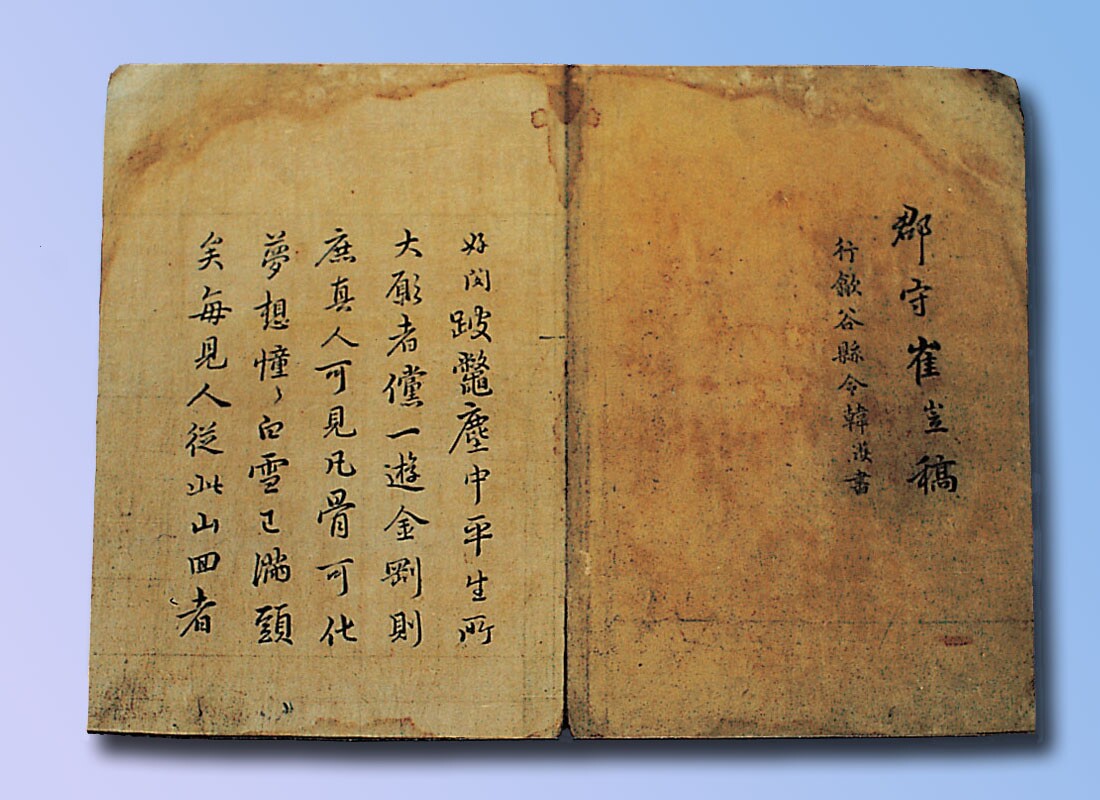 郡守崔岦稿
行歙谷縣令韓濩書
好閑跛鼈塵中平生所
大願者儻一遊金剛則
庶真人可見凡骨可化
夢想憧〻白雪已滿頭
矣每見人從此山回者